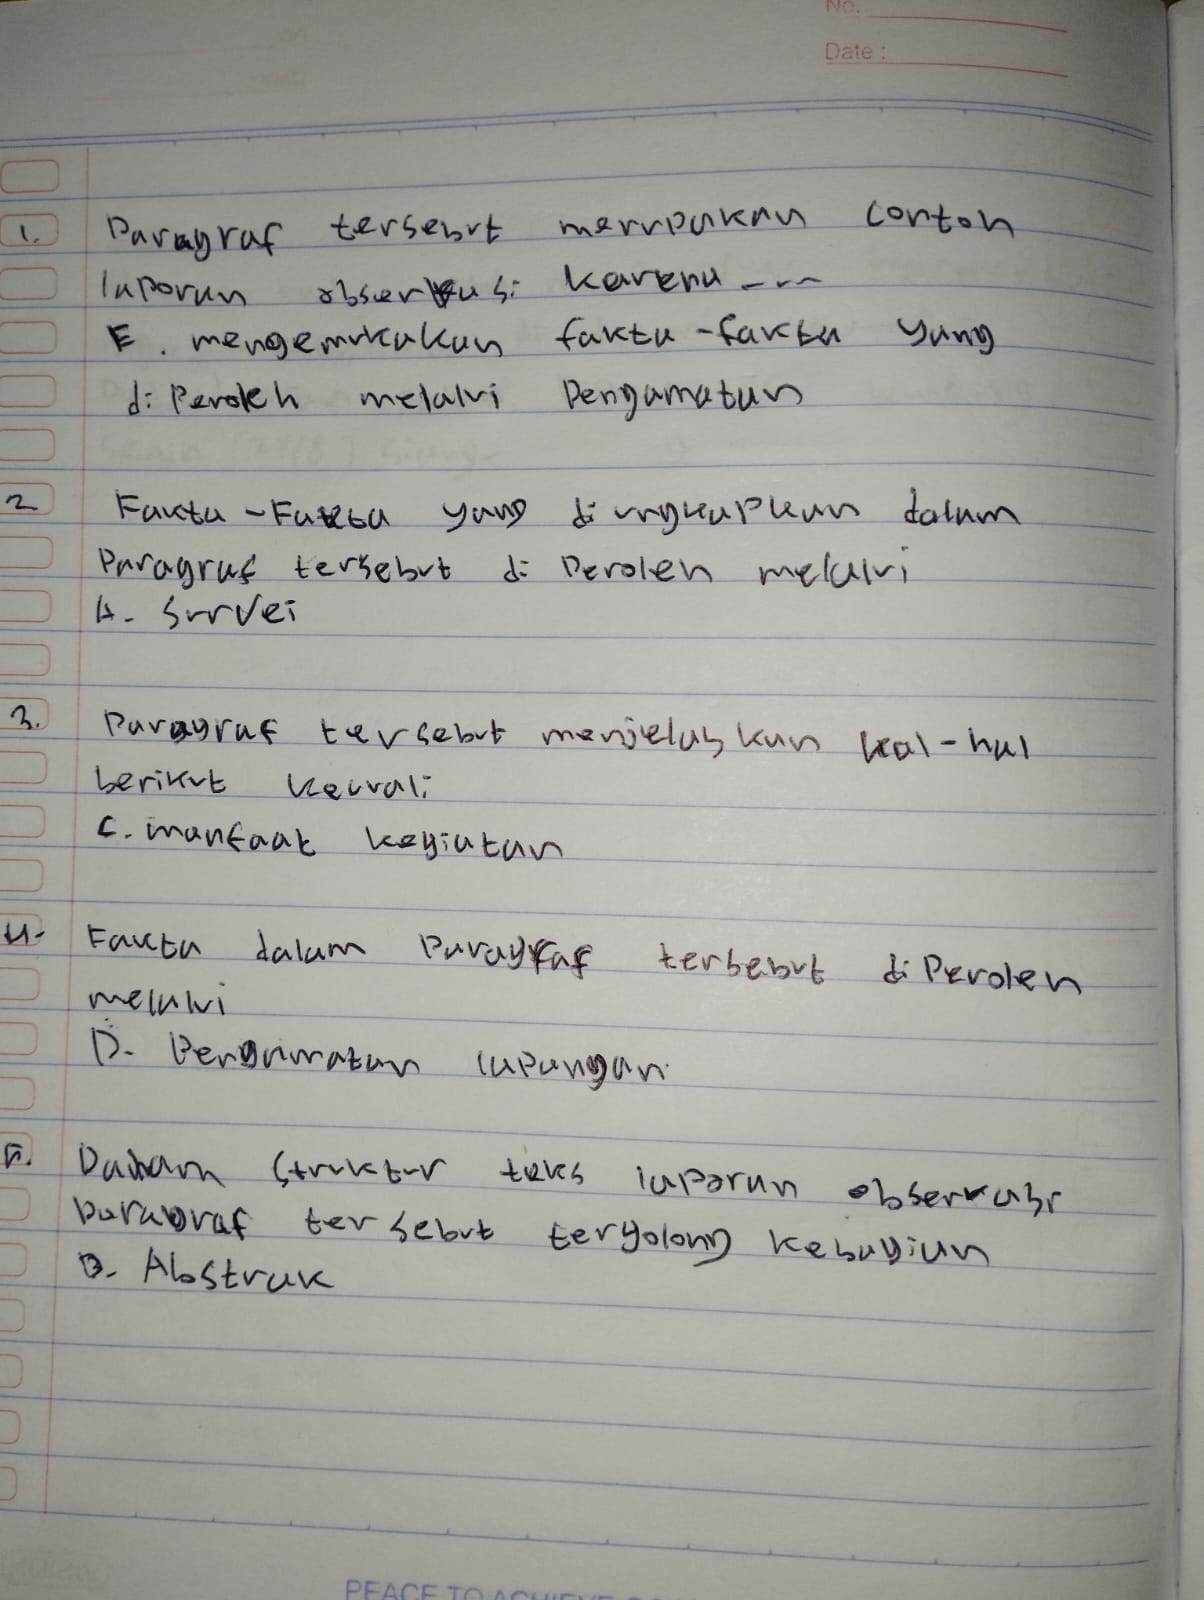 No.
Date :
1. Paragraf tersebut merupakan contoh
laporan observasi karena ---
E. mengemukakan fakta-fakta yang
di Peroleh melalui Pengamatan
2 Fakta-Fakta yang di ungkapkan dalam
Paragraf tersebut di Peroleh melalui
A. Survei
3. Paragraf tersebut menjelaskan hal-hal
berikut kecuali
C. manfaat kegiatan
4. Fakta dalam Paragraf tersebut di Peroleh
melalui
D. Pengamatan lapangan
5. Dalam Struktur teks laporan observasi
Paragraf tersebut tergolong kebagian
D. Abstrak
PEACE TO ACHIEVE